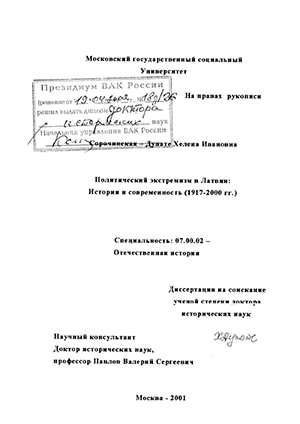 Московский государственный социальный
Университет
Президиум ВАК России
(решение от 19.04.2002 г. №
решил выдать диплом доктора
исторических наук
Начальник управления ВАК России
На правах рукописи
Сорочинская – Дупате Хелена Ивановна
Политический экстремизм в Латвии:
История и современность (1917-2000 гг.)
Специальность: 07.00.02 –
Отечественная история
Диссертация на соискание
ученой степени доктора
исторических наук
Научный консультант
Доктор исторических наук,
профессор Павлов Валерий Сергеевич
Москва - 2001